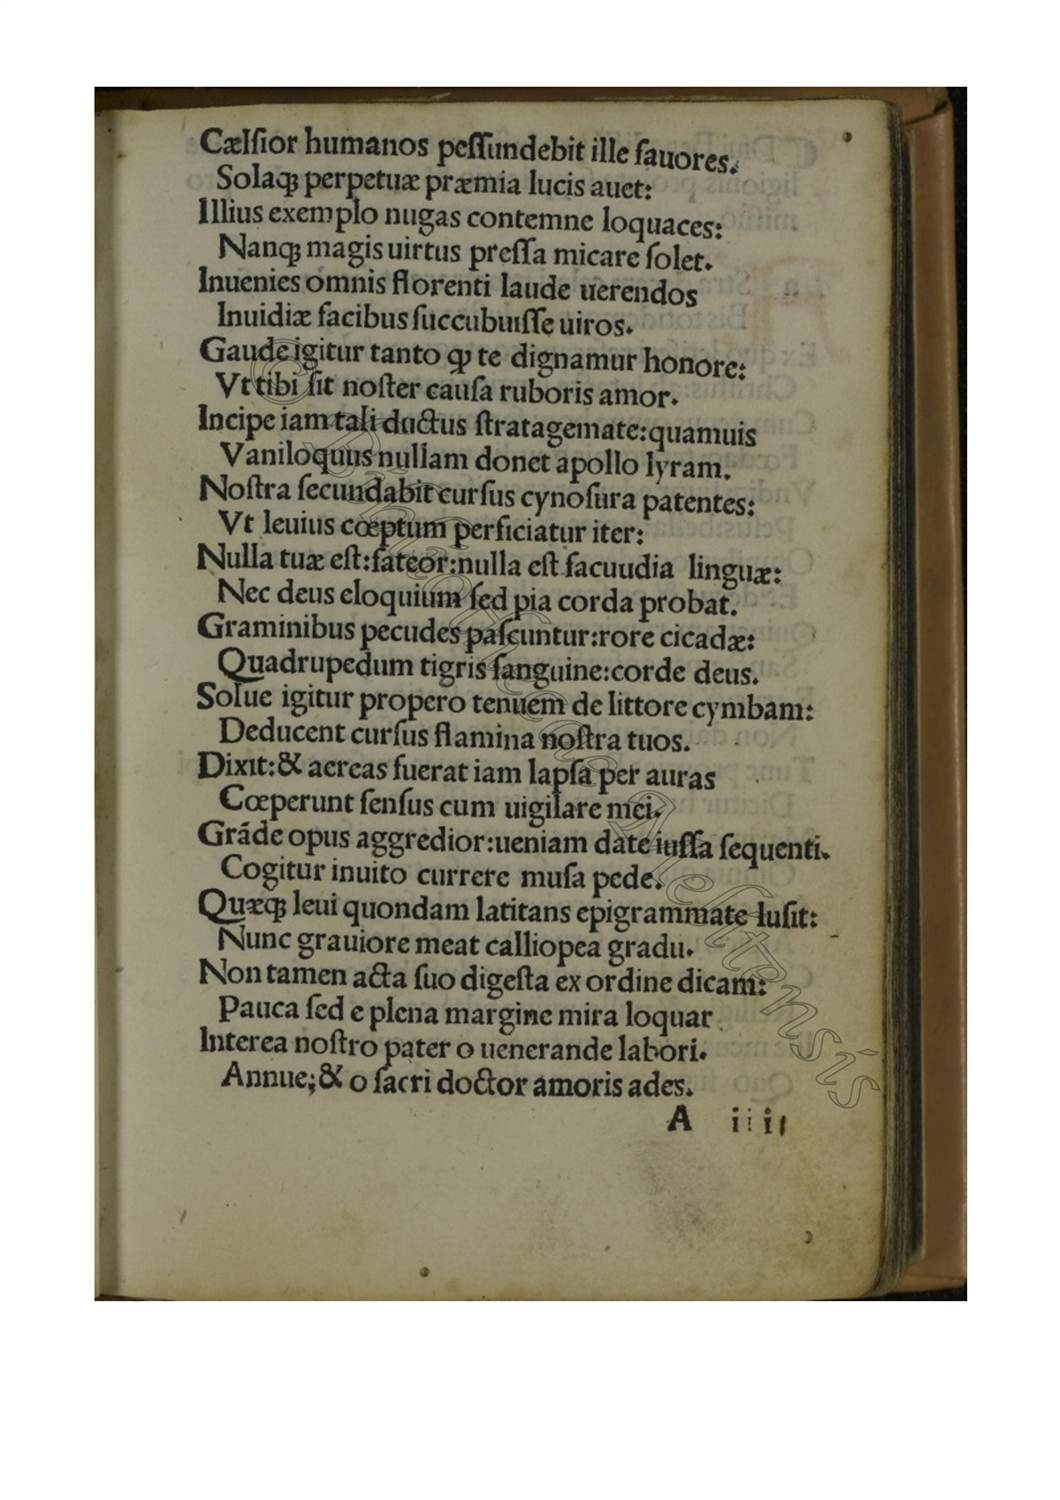 Cælſior humanos peſſundebit ille fauores.
Solaqꝫ perpetuæ præmia lucis auet:
Illius exemplo nugas contemne loquaces:
Nanqꝫ magis uirtus preſſa micare ſolet.
Inuenies omnis florenti laude uerendos
Inuidiæ facibus ſuccubuiſſe uiros.
Gaude igitur tanto ꝙ te dignamur honore:
Vt tibi ſit noſter cauſa ruboris amor.
Incipe iam tali ductus ſtratagemate:quamuis
Vaniloquus nullam donet apollo lyram.
Noſtra ſecundabit curſus cynoſura patentes:
Vt leuius cœptum perficiatur iter:
Nulla tuæ eſt:fateor:nulla eſt facuudia linguæ:
Nec deus eloquium ſed pia corda probat.
Graminibus pecudes paſcuntur:rore cicadæ:
Quadrupedum tigris ſanguine:corde deus.
Solue igitur propero tenuem de littore cymbam:
Deducent curſus flamina noſtra tuos.
Dixit:& aereas fuerat iam lapſa per auras
Cœperunt ſenſus cum uigilare mei.
Gráde opus aggredior:ueniam date iuſſa ſequenti.
Cogitur inuito currere muſa pede.
Quæqꝫ leui quondam latitans epigrammate luſit:
Nunc grauiore meat calliopea gradu.
Non tamen acta ſuo digeſta ex ordine dicam:
Pauca ſed e plena margine mira loquar
Interea noſtro pater o uenerande labori.
Annue;& o ſacri doctor amoris ades.
A iiii